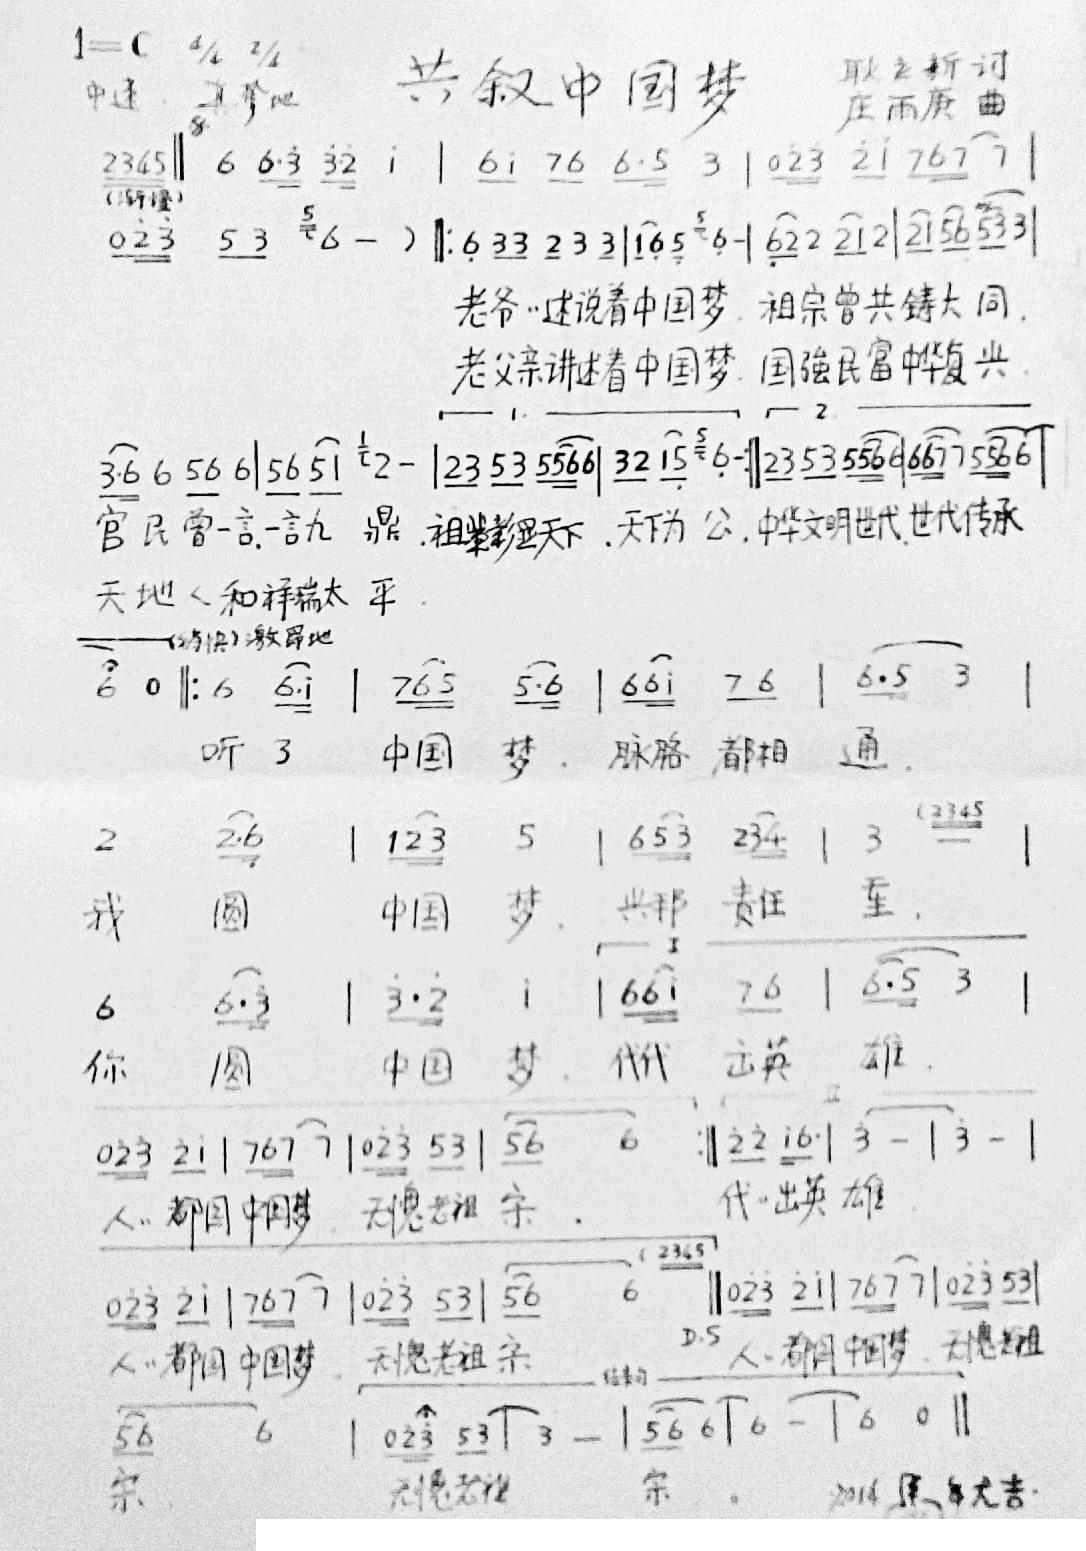 1=C 4/4 2/4
共叙中国梦
耿立新 词
中速 真挚地
庄雨庚 曲
2345‖ 6 6·3 32 i | 6i 76 6·5 3 | 023 2i 767 7 |
(渐慢)
023 53 6 — ) ‖: 6 33 2 3 3 | 165 6 - | 622 212 | 2156 533 |
老爷〃述说着中国梦. 祖宗曾共铸大同.
老父亲讲述着中国梦. 国強民富中华复兴.
1. 2.
3·6 6 56 6 | 56 51 2 - | 23 53 5566 | 32 15 6 - :‖ 23 53 5566 | 667 7 5566 |
官民曾一言.一言九鼎. 天下. 天下为公. 中华文明世代.世代传承
天地人和祥瑞太平.
激昂地
6 0 ‖: 6 6·i | 765 5·6 | 66i 76 | 6·5 3 |
听了中国梦. 脉胳都相通.
(2345
2 2·6 | 123 5 | 653 234 | 3 |
我圆中国梦. 兴邦责任重.
I
6 6·3 | 3·2 i | 66i 76 | 6·5 3 |
你圆中国梦. 代代出英雄.
II
023 2i | 767 7 | 023 53 | 56 6 :‖ 22 i6· | 3 — | 3 — |
人〃都圆中国梦. 无愧老祖宗. 代〃出英雄.
(2345
023 2i | 767 7 | 023 53 | 56 6 ‖ 023 2i | 767 7 | 023 53 |
D.S
人〃都圆中国梦. 无愧老祖宗 人〃都圆中国梦. 无愧老祖
结束句
56 6 | 023 53 3 — | 56 6 6 — 6 0 ‖
宗. 无愧老祖宗.
2014 年大吉.